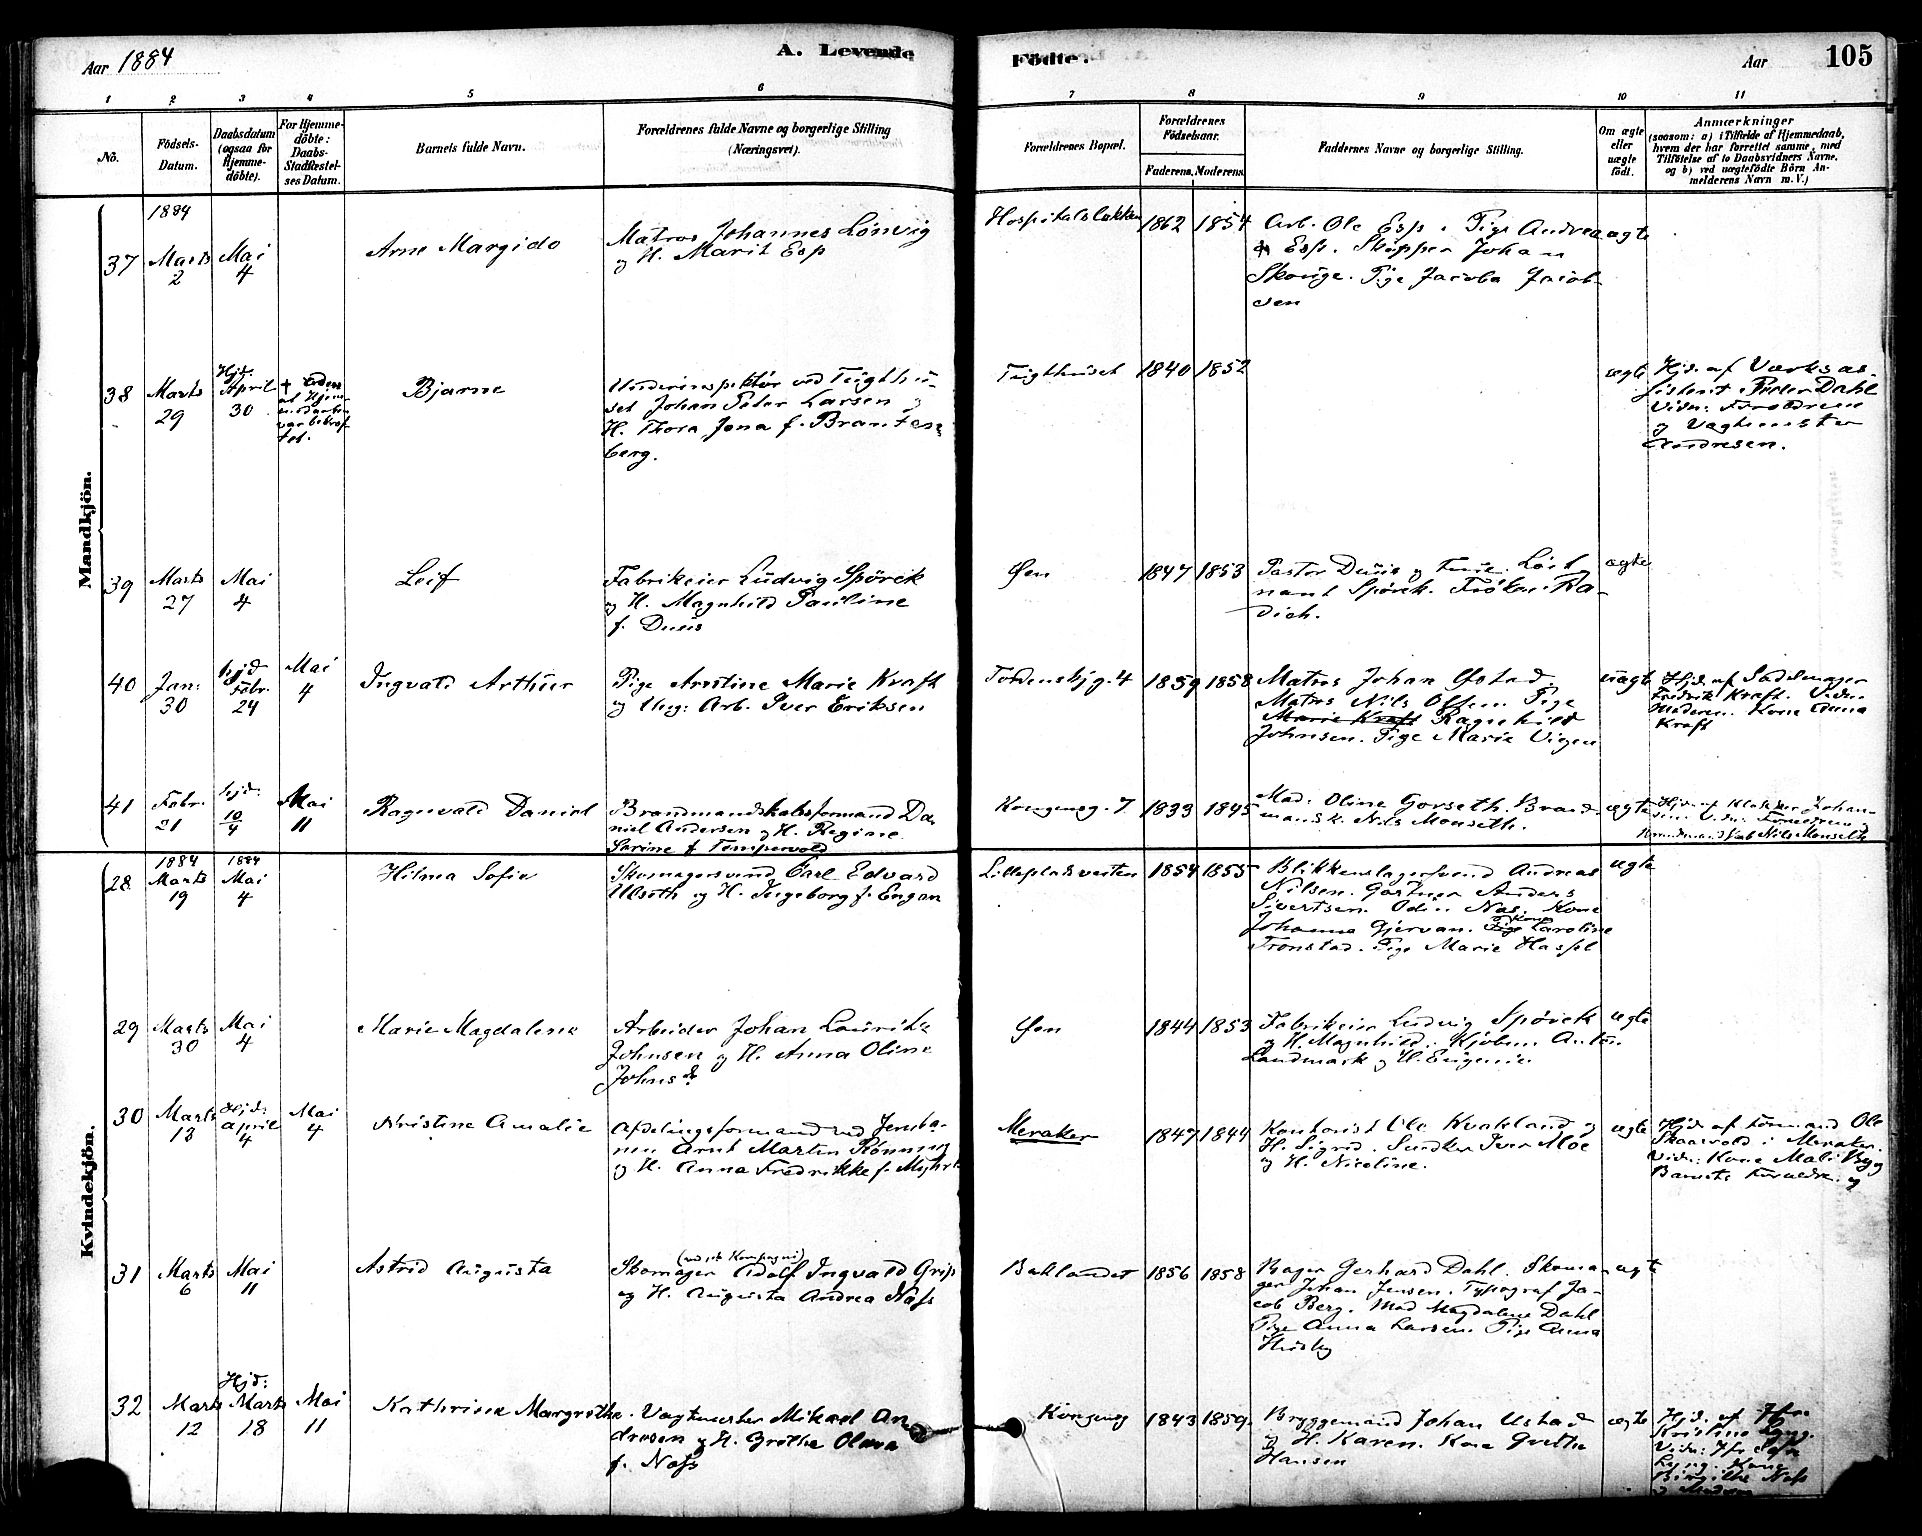 Aar 1884
A. Levende
Födte.
Aar
105
1 2 3 4 5 6 7 8 9 10 11
No.
Födsels-
Datum.
Daabsdatum
(ogsaa for
Hjemme-
döbte).
For Hjemme-
döbte:
Daabs-
Stadfæstel-
ses Datum.
Barnets fulde Navn.
Forældrenes fulde Navne og borgerlige Stilling
(Næringsvei).
Forældrenes Bopæl.
Forældrenes
Födselsaar.
Faderens. Moderens.
Faddernes Navne og borgerlige Stilling.
Om ægte
eller
uægte
födt.
Anmærkninger
(saasom: a) i Tilfælde af Hjemmedaab,
hvem der har forrettet samme, med
Tilföielse af to Daabsvidners Navne,
og b) ved uægtefödte Börn An-
melderens Navn m. V.)
Mandkjön.
1884
37
Marts
2
Mai
4
Arne Margido
Matros Johannes Lönvig
og H. Marit Esp
Hospitalsløkken
1862
1854
Arb. Ole Esp. Pige Andrea
Esp. Skipper Johan
Skouge. Pige Jacoba Jacob-
sen
ægte
38
Marts
29
Hjd.
April
30
Bjarne
Underinspektör ved Tugthu-
set Johan Peter Larsen og
H. Thora Jona f. Branten-
berg.
Tugthuset
1840
1852
ægte
Hjd. af Værksas-
sistent Peter Dahl
Vidn: Forældrene
og Vagtmester
Andresen.
39
Marts
27
Mai
4
Leif
Fabrikeier Ludvig Spörck
og H. Magnhild Pauline
f. Duus
Øen
1847
1853
Pastor Duus og Frue. Löit-
nant Spörck. Fröken Ra-
dich.
ægte
40
Jan:
30
hjd
Febr.
24
Mai
4
Ingvald Arthur
Pige Arntine Marie Kraft
og Ung: Arb. Iver Eriksen
Tordenskj.g. 4
1859
1858
Matros Johan Østad.
Matros Nils Olsen. Pige
Marie Kraft Ragnhild
Johnsen. Pige Marie Vigen
uægte
Hjd. af Sadelmager
Fredrik Kraft. Vidn:
Moderen. Kone Anna
Kraft
41
Febr.
21
hjd:
10/4
Mai
11
Ragnvald Daniel
Brandmandskabsformand Da-
niel Andersen og H. Regine
Sarine f. Tempervold
Kongensg. 7
1833
1845
Mad: Oline Gorseth. Brand-
mandsk. Nils Monseth.
ægte
Hjd. af Klokker Johan-
sen. Vidn: Forældrene og
Brandmandskab Nils Monseth
Kvindekjön.
28
1884
Marts
19
1884
Mai
4
Hilma Sofie
Skomagersvend Carl Edvard
Ulseth og H. Ingeborg f. Engan
Lillepladsveiten
1854
1855
Blikkenslagersvend Andreas
Nilsen. Gartner Anders
Sivertsen. Odin Næs. Kone
Johanna Gjervan. Pige Kone Caroline
Tronstad. Pige Marie Hassel
ægte
29
Marts
30
Mai
4
Marie Magdalene
Arbeider Johan Laurits
Johnsen og H. Anna Oline
Johnsdr.
Øen
1844
1853
Fabrikeier Ludvig Spörck
og H. Magnhild. Kjöbm. Anton
Landmark og H. Eugenie
ægte
30
Marts
13
Hjd:
April
4
Mai
4
Kristine Amalie
Afdelingsformand ved Jernba-
nen Arnt Martin Rönning
og H. Anna Fredrikke f. Myhre
Meraker
1847
1844
Kontorist Ole Kvakland og
H. Sigrid. Snedker Iver Moe
og H. Nicoline.
ægte
Hjd. af Formand Ole
Skaarvold i Meraker.
Vidn: Kone Mali Byg
Barnets Forældre. og
31
Marts
6
Mai
11
Astrid Augusta
Skomager Adolf Ingvald Grip
og H. Augusta Andrea Næss
Baklandet
1856
1858
Bager Gerhard Dahl. Skoma-
ger Johan Jensen. Typograf Ja-
cob Berg. Mad Magdalene Dahl
Pige Anna Larsen. Pige Anna
Husby
ægte
32
Marts
12
Hjd:
Marts
18
Mai
11
Kathrine Margrethe
Vagtmester Mikael An-
dresen og H. Brethe Olava
f. Næss
Kongensg
1843
1859
Bryggemand Johan Ustad
og H. Karen. Kone Grethe
Hansen
ægte
Hjd. af Jfr.
Kristine Lyng.
Vidn: Jfr Sofie
Lyng. Kone
Birgitte Næss